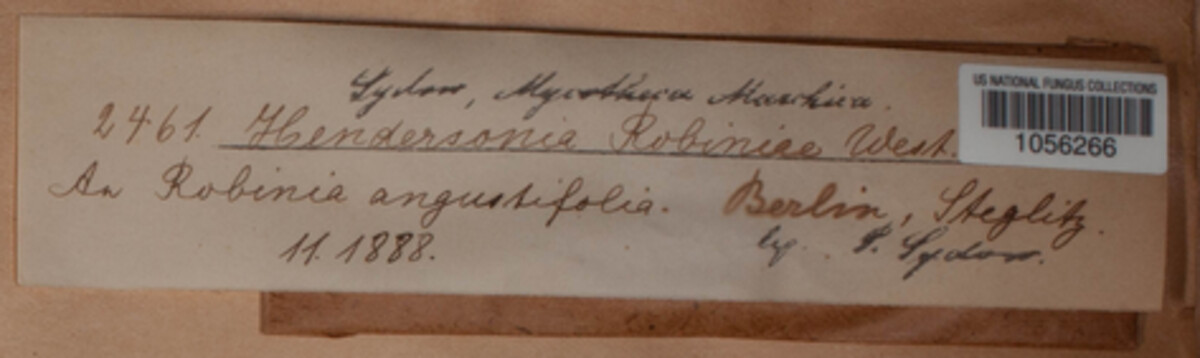 Sydow, Mycotheca Marchica.
2461. Hendersonia Robiniae West.
An Robinia angustifolia. Berlin, Steglitz.
11. 1888. lg. P. Sydow.
US NATIONAL FUNGUS COLLECTIONS
1056266